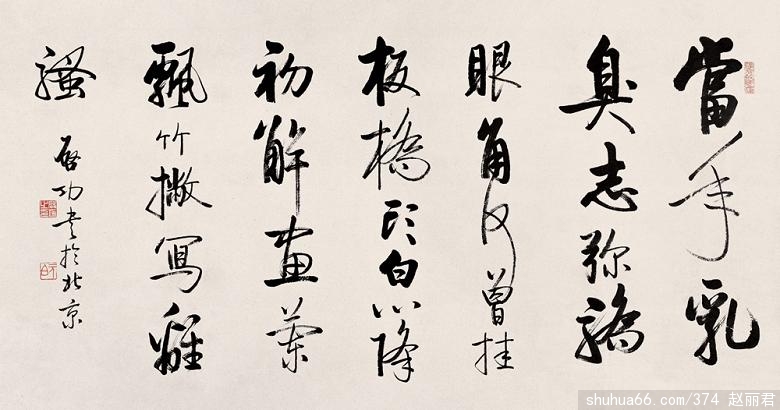 當年乳
臭志弥驕
眼角何曾挂
板橋頭白心降
初解畫蘭
飄竹撇寫離
騷
啟功书於北京
shuhua66.com/374 赵丽君